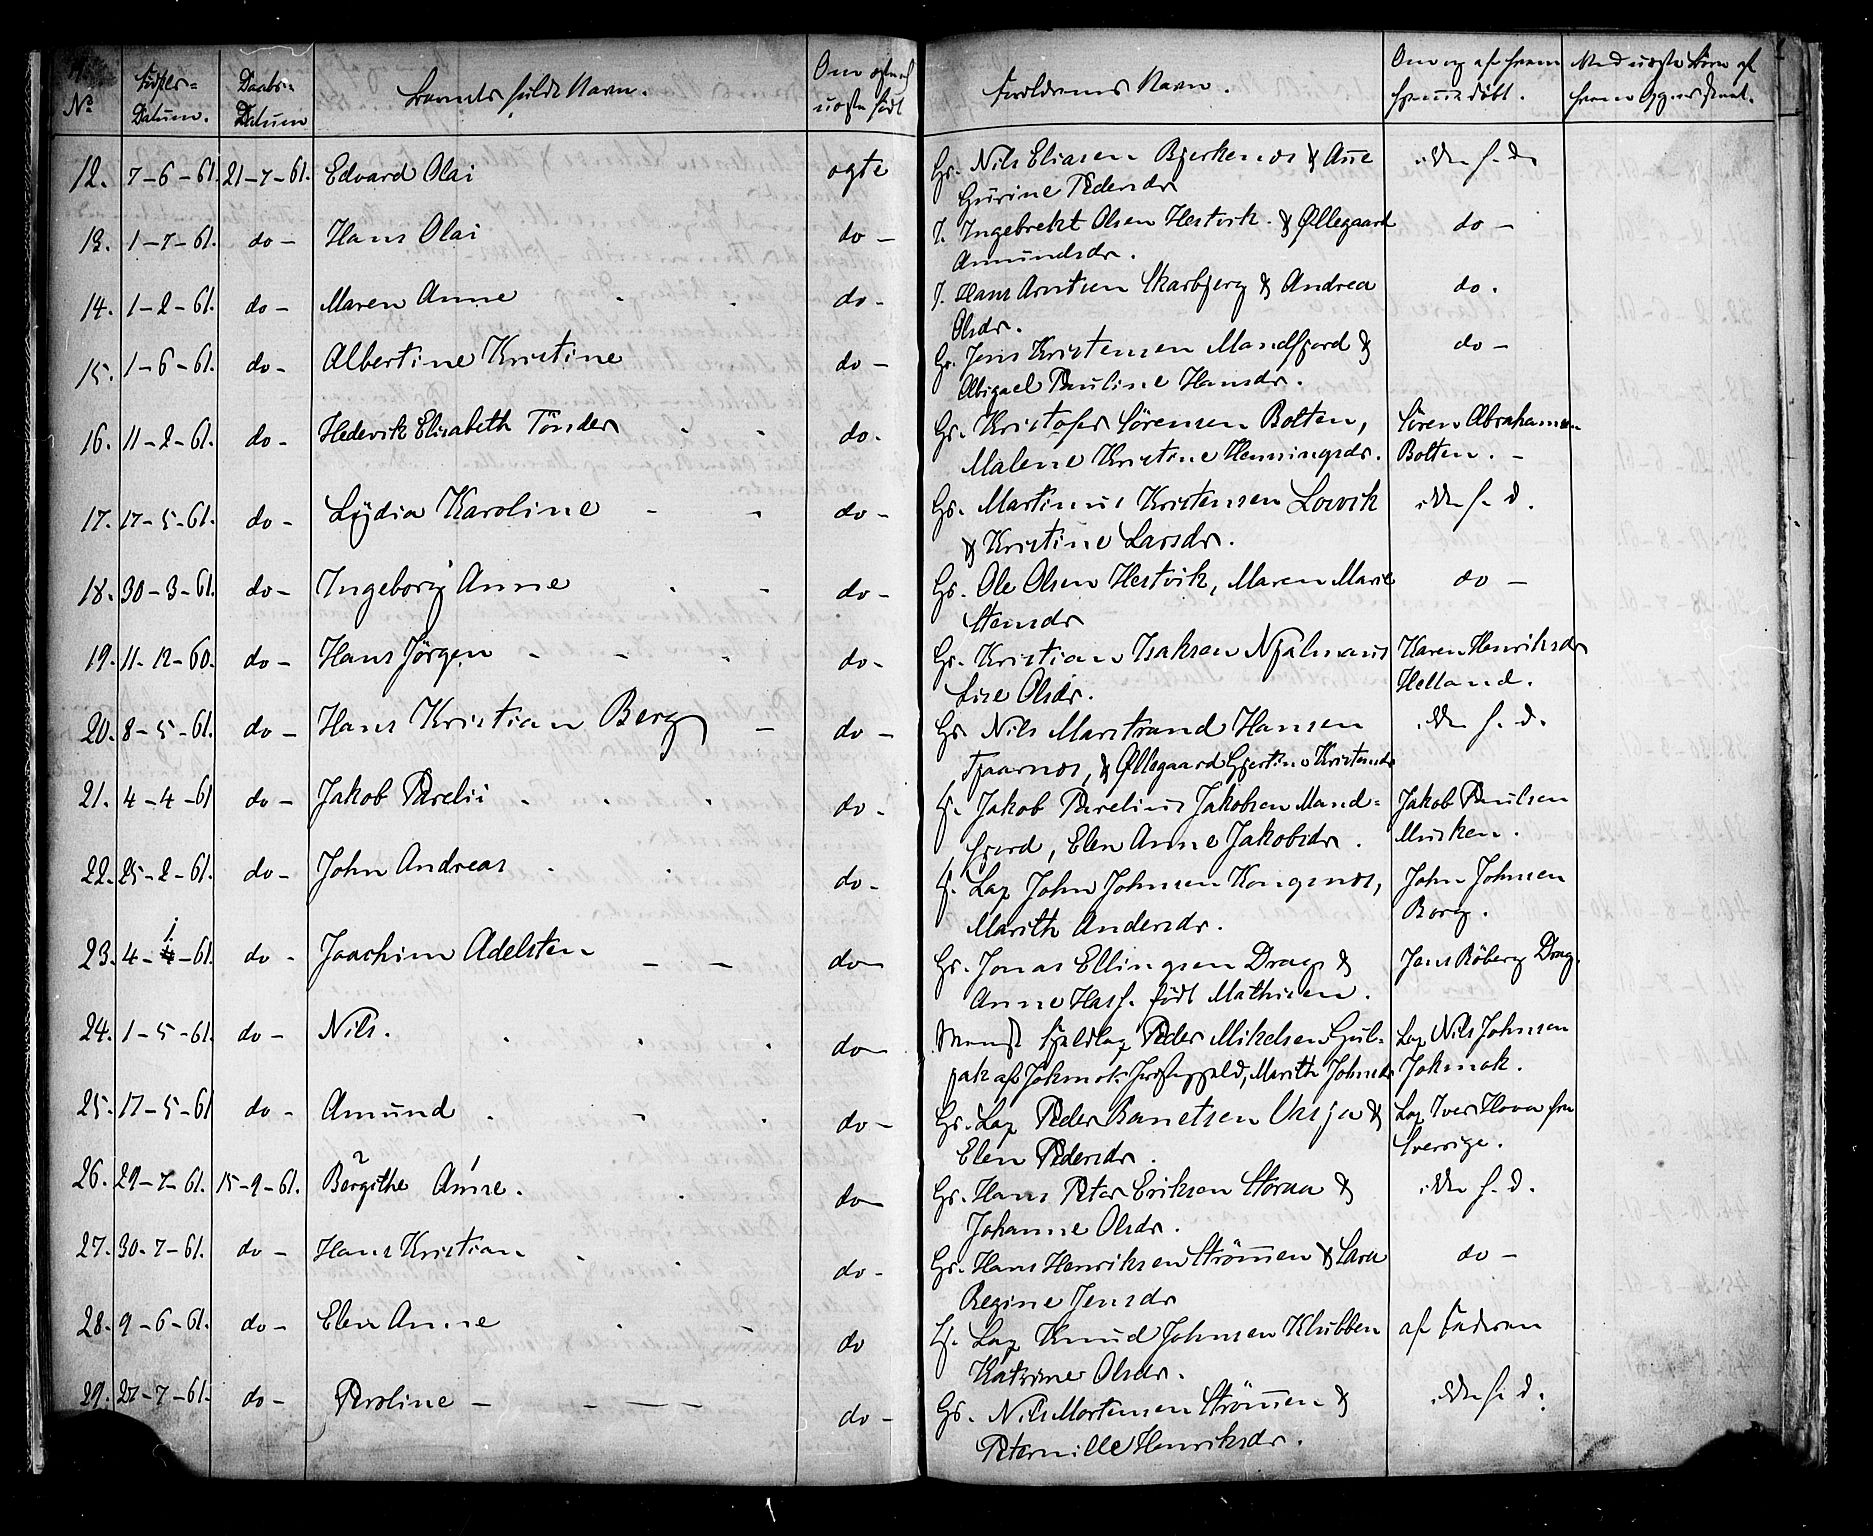 No Fødsels= Datum. Daabs= Datum Barnets fulde Navn. Om ægte el uægte født Forældrenes Navn. Om og af hvem hjemmedøbt.
12. 7-6-61. 21-7-61. Edvard Olai ogte Gs. Nils Eliasen Bjerkenes & Ane ikke h. d.
Gurine Pedersdr
13. 1-7-61. do - Hans Olai do - J. Ingebrekt Olsen Hestvik & Øllegaard do -
Amundsdr.
14. 1-2-61. do - Maren Anne do - J. Hans Arntsen Skarbjerg & Andrea do.
Olsdr.
15. 1-6-61. do - Albertine Kristine do - Gs. Jens Kristensen Mandfjord & do -
Abigael Pauline Hansdr.
16. 11-2-61. do - Hedevik Elisabeth Tönder do. Gs. Kristofer Sörensen Bolten, Sören Abrahamsen
Malene Kristine Henningsdr. Bolten. -
17. 17-5-61. do - Lydia Karoline do - Gs. Martinus Kristensen Lovik ikke h. d.
& Kristine Larsdr.
18. 30-3-61. do - Ingeborg Anne do - Gs. Ole Olsen Hestvik, Maren Marie do -
Stensdr
19. 11-12-60. do - Hans Jörgen do - Gs. Kristian Isaksen Njalmans Karen Henriksdr
Lise Olsdr. Helland.
20. 8-5-61. do - Hans Kristian Berg - do - Gs Nils Marstrand Hansen ikke h. d.
Tjaarnes, & Øllegaard Gjertine Kristensdr
21. 4-4-61 do - Jakob Parelii do - Jakob Parelius Jakobsen Mand= Jakob Paulsen
fjord, Elen Anne Jakobsdr. Musken.
22. 25-2-61. do - John Andreas do - Lap John Johnsen Kongsnes, John Johnsen
Marith Andersdr. Borg.
23. 4-1-61. do - Joachim Adelsten - - do - Gs. Jonas Ellingsen Drag & Jens Röberg Drag.
Anne Hass. født Mathisen.
24. 1-5-61. do - Nils. do - Svensk Fjeldlap Peder Mikelsen Lap Nils Johnsen
af Jokmok Præstegjeld, Marith Johnsdr Jokmok.
25. 17-5-61 do - Amund do - Gs. Lap Peder Vasja & Lap Iver fra
Elen Pedersdr. Sverige.
26. 29-7-61. 15-9-61. Bergithe Anne. do - Gs. Hans Peter Eriksen Storaa & ikke h. d.
Johanne Olsdr.
27. 30-7-61. do - Hans Kristian do - Gs. Hans Henriksen Strömmen & Sara do -
Regine Jensdr
28. 9-6-61. do - Elen Anne do Lap Knud Johnsen Klubben af Faderen
Katrine Olsdr.
29. 27-7-61. do - Peroline - - - do - Gs. Nils Mortensen Strömmen & ikke h. d.
Peternille Henriksdr.